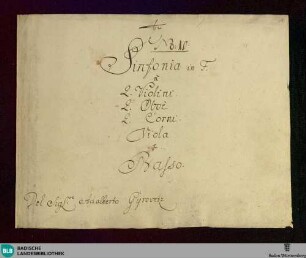 Sinfonia in F.
a
2. Violini
2. Oboe
2. Corni
Viola
et
Basso.
Del Sigre Adalberto Gyrovetz
BLB
BADISCHE
LANDESBIBLIOTHEK
Baden-Württemberg